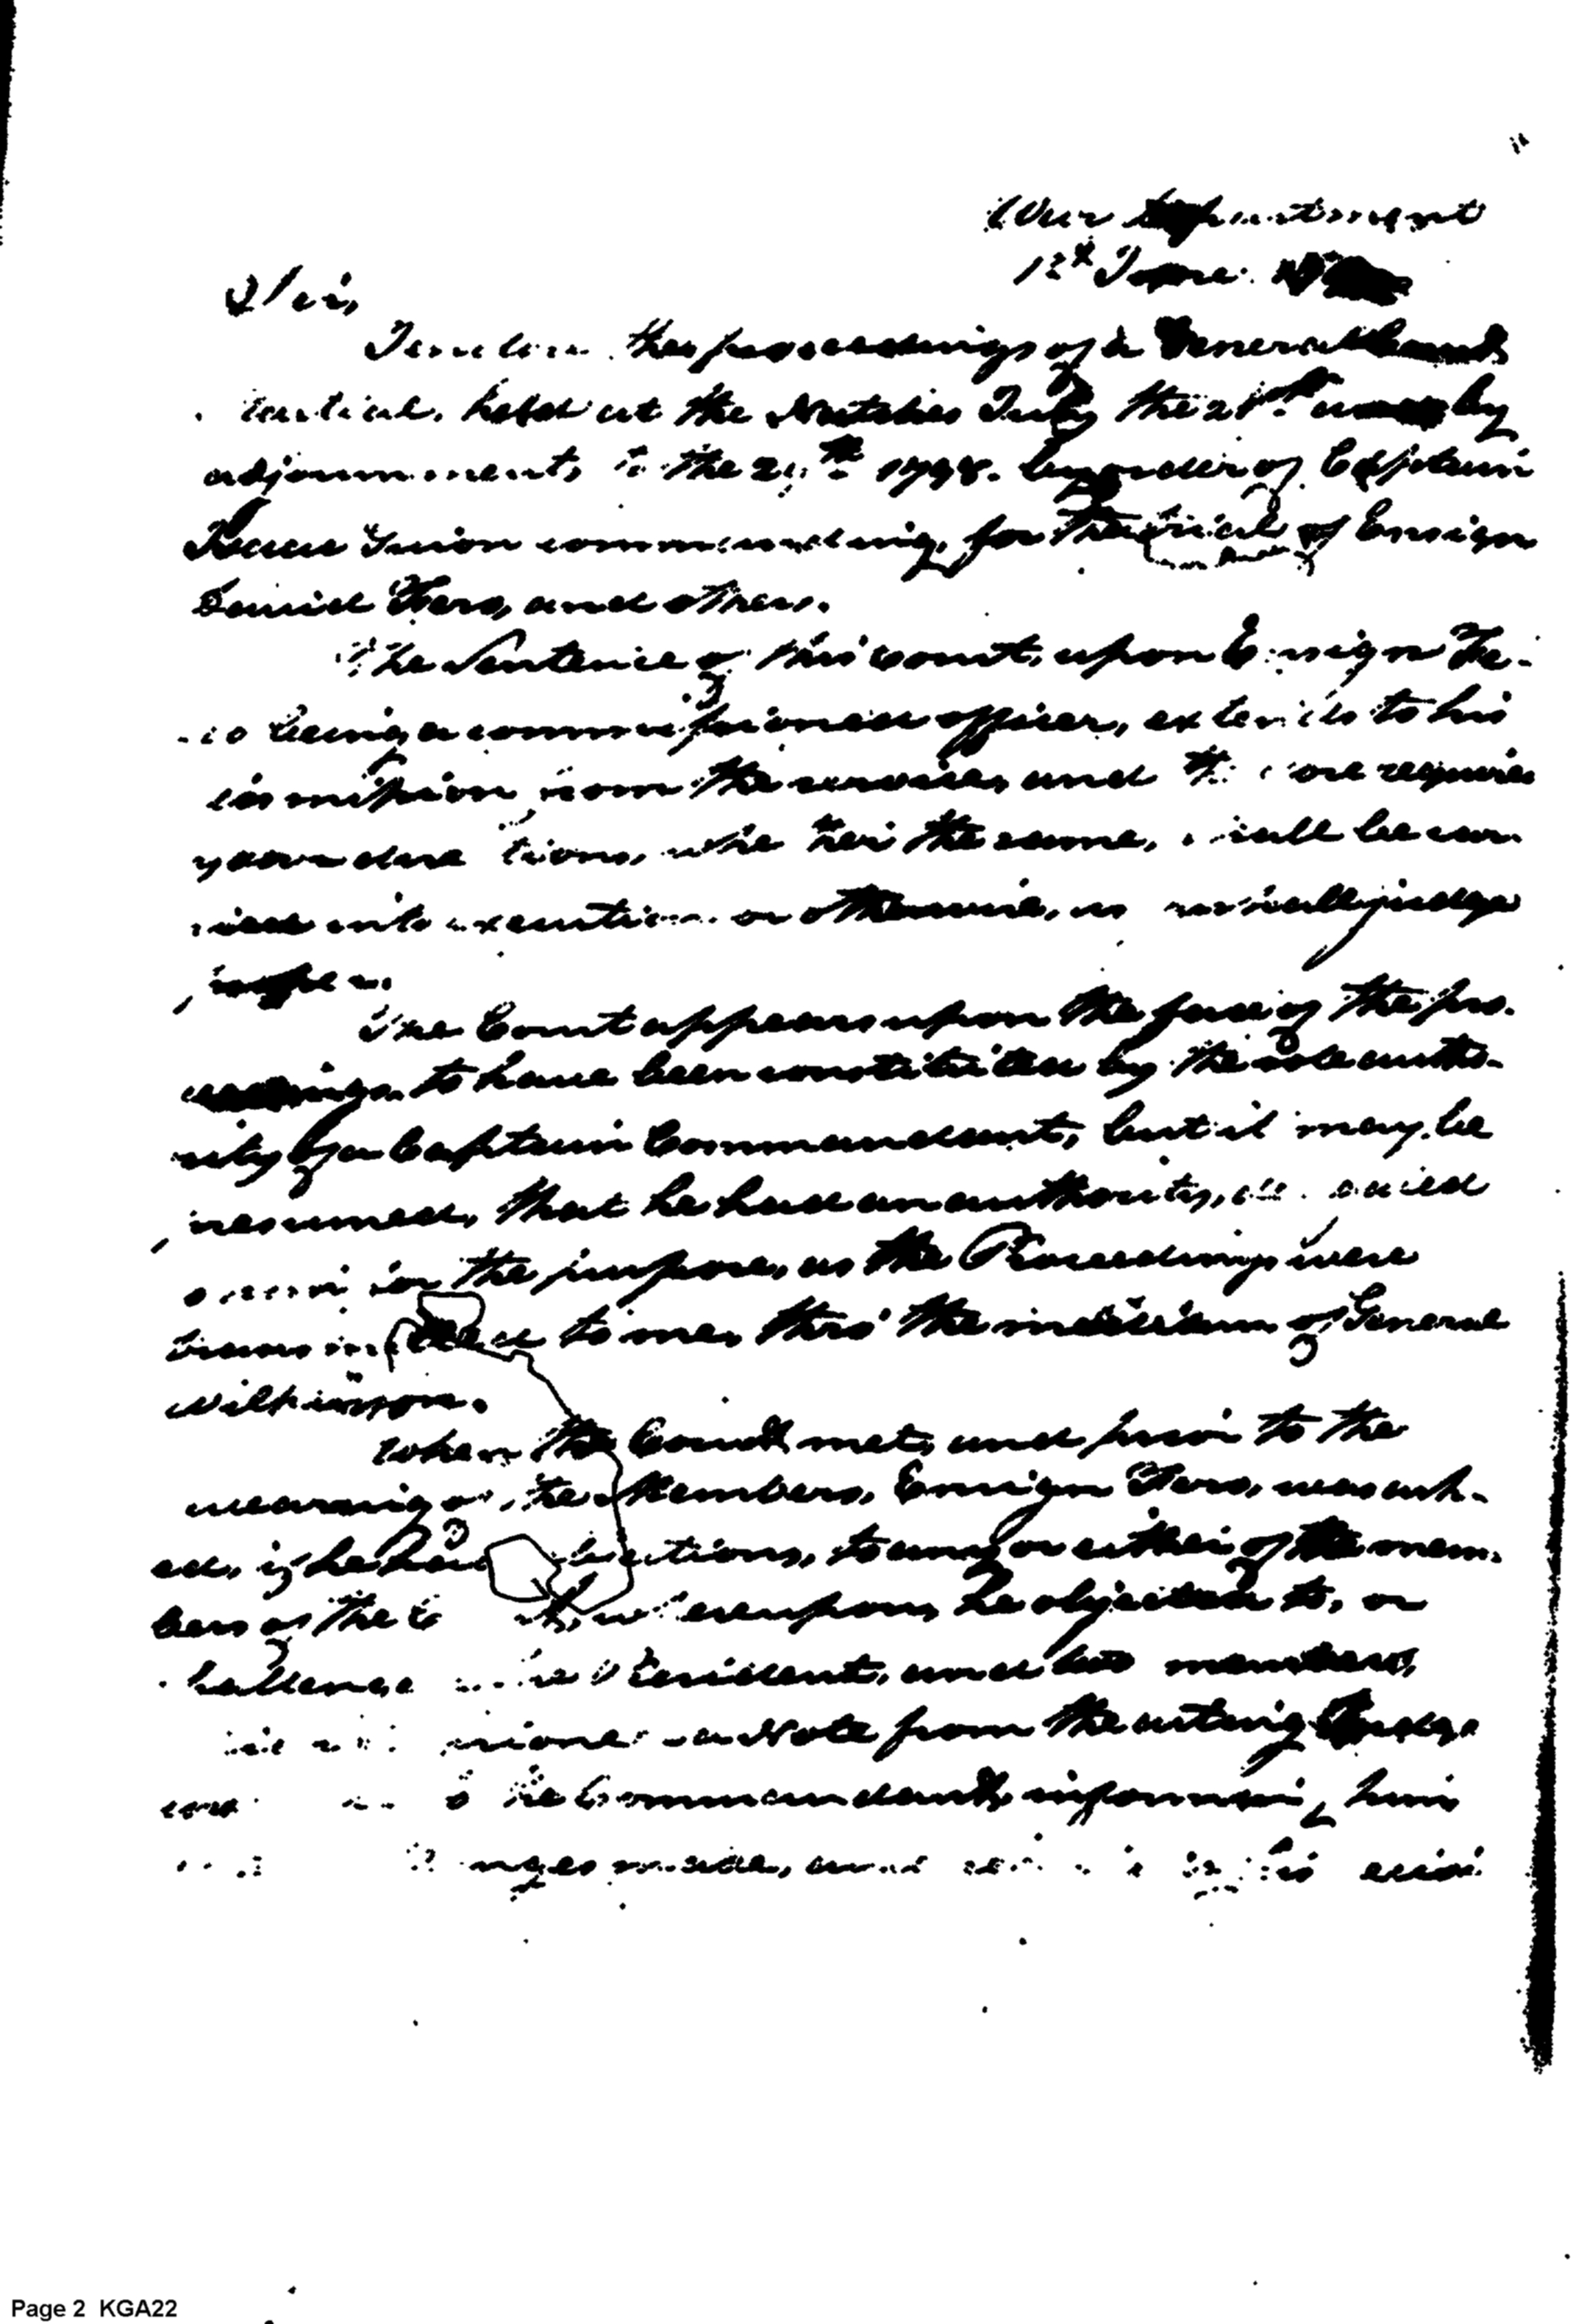 War Department
12th June.
Sir,
I enclose the proceedings of a General Court
Martial, held at the Natches July the 21st and by
adjournments to the 29th 1798. by order of Captain
Isaac Guion commanding, for the trial of Ensign
David Fero, and others.
The Sentence of this Court, upon Ensign Fe-
ro being a commissioned officer, extends to his
dismission from the service, and therefore requires
your directions, whether the same, shall be car
ried into execution or otherwise, as you shall judge
proper.
The Court appears upon the face of the pro-
ceedings to have been constituted by the sole autho-
rity of a Captain Commandant, but it may be
presumed, that he had an authority,
for the purpose, as the Proceedings were
transmitted to me, thro' the medium of General
Wilkinson.
When the Court met, and prior to the
swearing of the Members, Ensign Fero, was ask-
ed, if he had objections, to any or either of the mem-
bers of the Court, whereupon, he objected to, or
challenged the President, and two members,
a Note from the acting Judge
to the Commandant, informing him
made, and
Page 2 KGA22